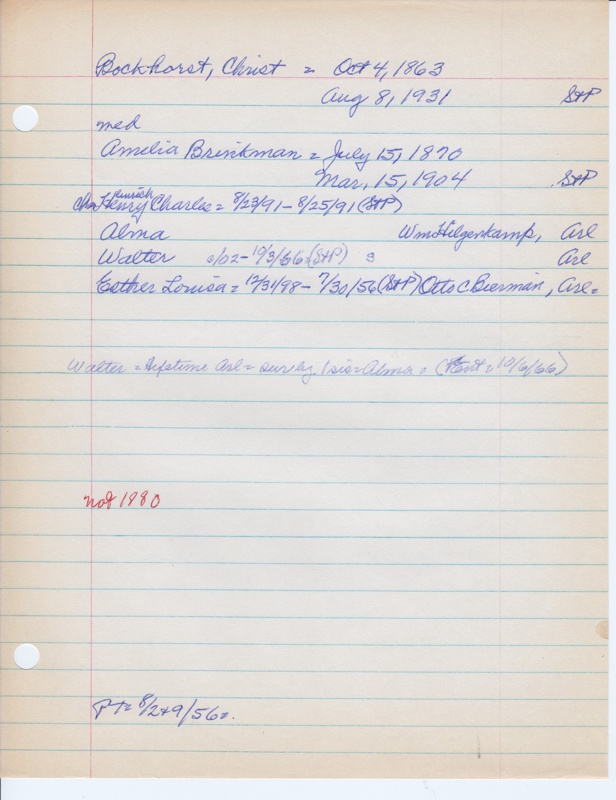 Bockhorst, Christ = Oct 4, 1863
Aug 8, 1931 StP
med
Amelia Brinkman = July 15, 1870
Mar, 15, 1904 StP
Heinrich
Henry Charlie = 8/23/91 - 8/25/91 (StP)
Alma Wm Hilgenkamp, Arl
Walter /02 - 10/3/66 (StP) Arl
Esther Louisa = 12/31/98 - 7/30/56 (StP) Otto C Bierman, Arl =
Walter = lifetime Arl = surv by 1 sis = Alma = ( 10/6/66)
not 1880
PT = 8/2 & 9/56 =.